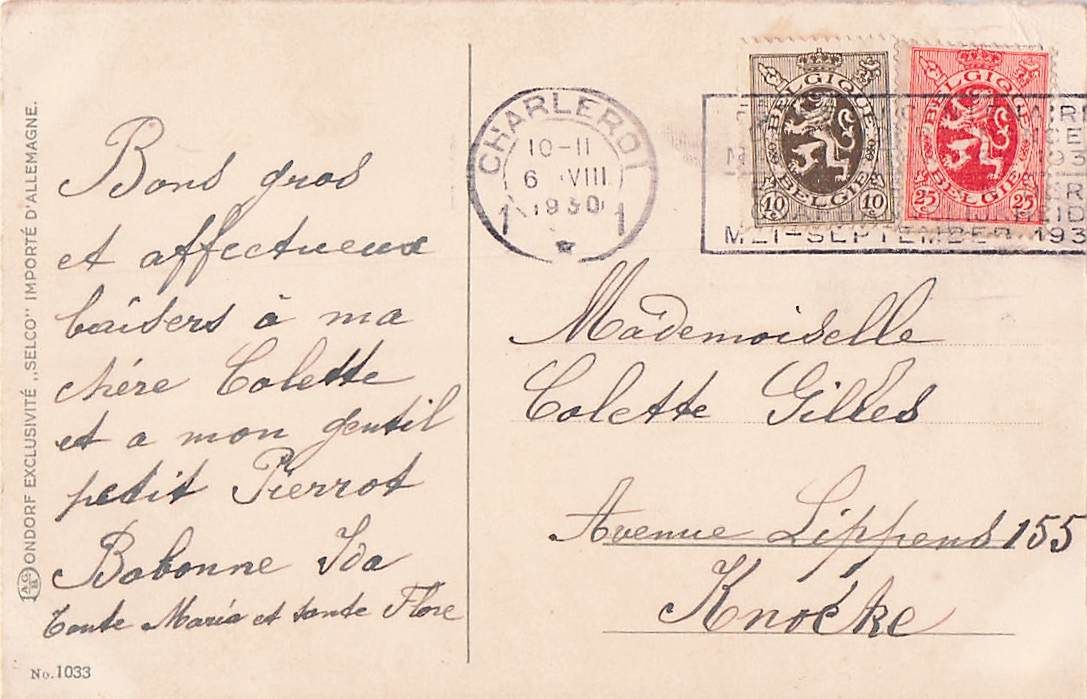 ONDORF EXCLUSIVITÉ „SELCO" IMPORTÉ D'ALLEMAGNE.
Bons gros
et affectueux
baisers à ma
chére Colette
et a mon gentil
petit Pierrot
Bobonne Ida
Tante Maria et tante Flore
No. 1033
CHARLEROI
10-11
6 VIII
1930
1 1
BELGIQUE
BELGIE
10 c 10 c
BELGIQUE
BELGIE
25 c 25 c
MEI-SEPTEMBER 193
Mademoiselle
Colette Gilles
Avenue Lippens 155
Knocke